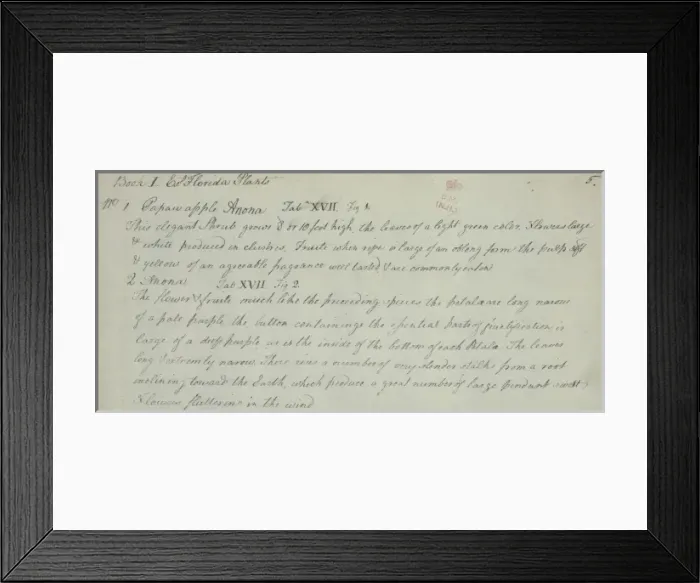 Book 1. Et Florida Plants 5.
No 1 Papaw apple Anona Tab XVII. Fig 1.
This elegant Shrub grows 8 or 10 foot high, the leaves of a light green color. Flowers large
& white produced in clusters, Fruits when ripe, large of an oblong form the pulp soft
& yellow of an agreeable fragrance well tasted & are commonly eaten
2 Anona Tab XVII Fig 2.
The flower & fruits much like the preceding species the petala are long narrow
of a pale purple, the button containinge the essential parts of fructification is
large of a deep purple as is the inside of the bottom of each Petala. The leaves
long & extremly narrow. There rises a number of very slender stalks from a root
inclining toward the Earth, which produce a great number of large pendant sweet
Flowers fluttering in the wind